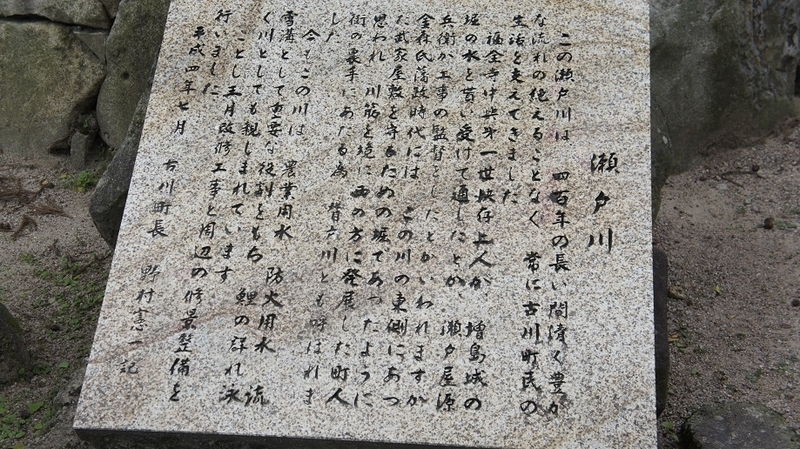 瀬戸川
この瀬戸川は 四百年の長い間清く豊か
な流れの絶えることなく 常に古川町民の
生活を支えてきました
福全寺中興 一世 上人が 増島城の
堀の水を貰い受けて通したとか 瀬戸屋源
兵衛が工事の監督をしたとかいわれますが
金森氏藩政時代には この川の東側にあっ
た武家屋敷を守るための堀であったように
思われ 川筋を境に西の方に発展した町人
街の裏手にあたる為 背戸川とも呼ばれま
した
今もこの川は 農業用水 防火用水 流
雪溝として重要な役割をもち 鯉の群れ泳
ぐ川としても親しまれています
ことし五月改修工事と周辺の修景整備を
行いました
平成四年七月 古川町長 野村 一記